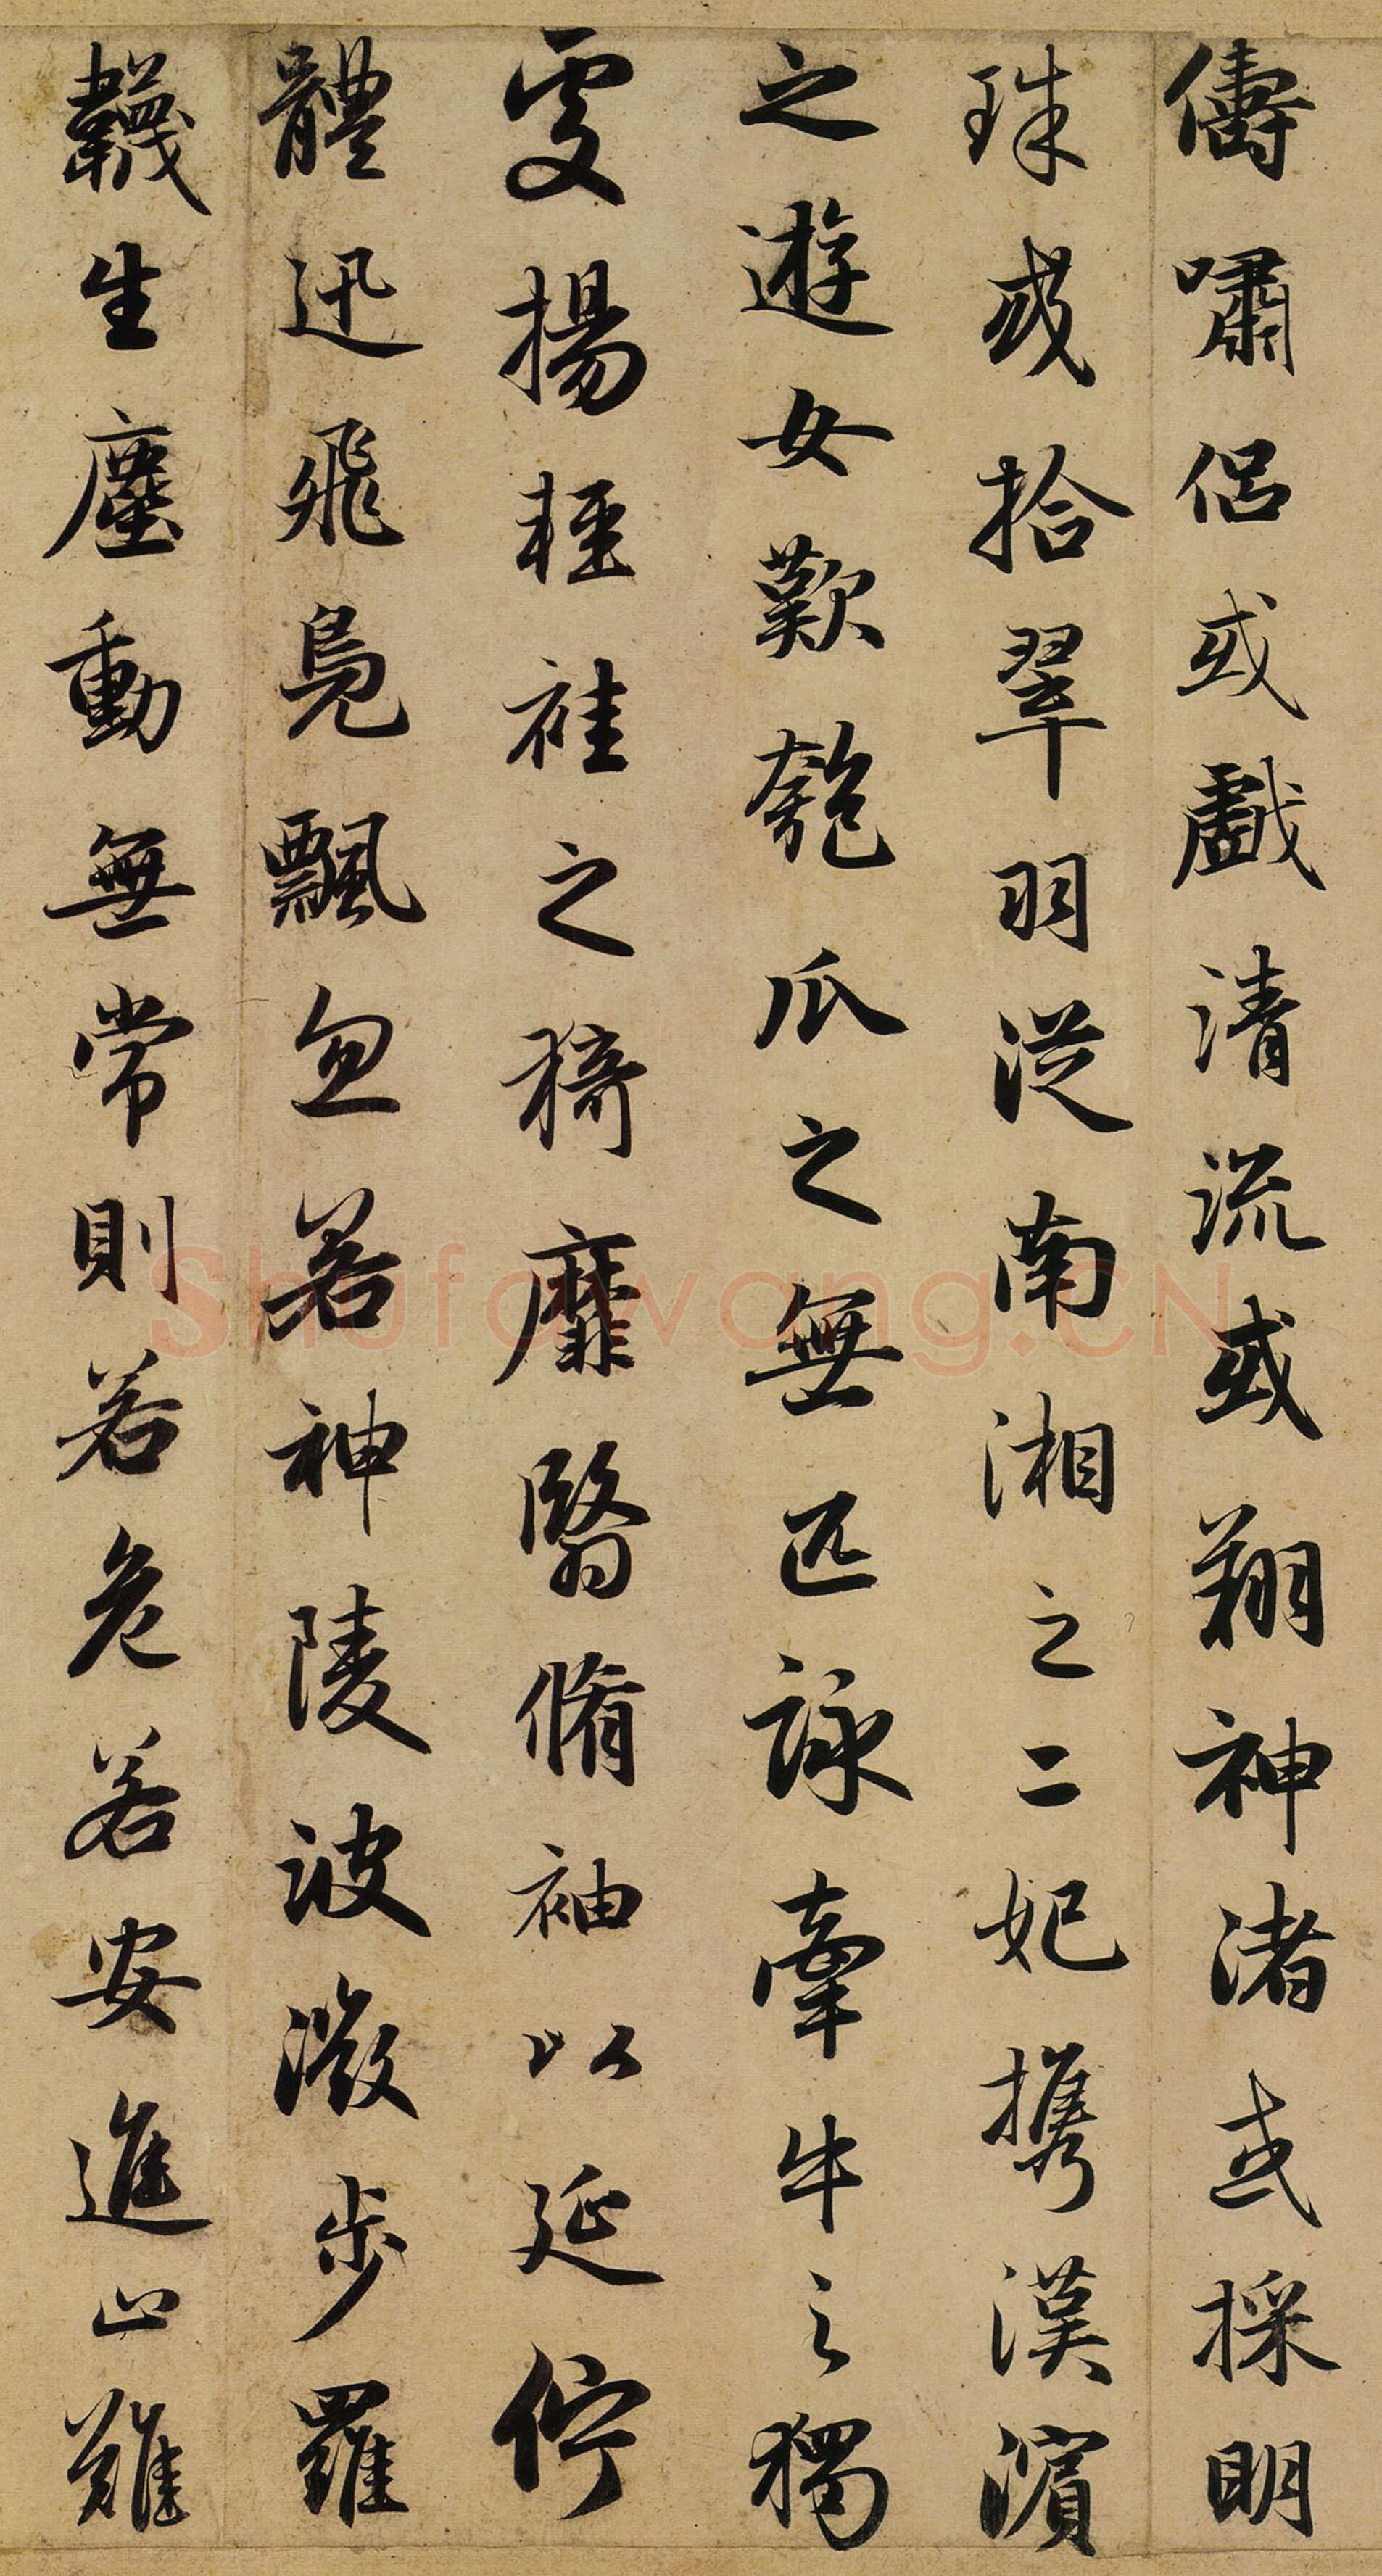 儔嘯侶或戲清流或翔神渚或採明
珠或拾翠羽從南湘之二妃攜漢濱
之遊女歎匏瓜之無匹詠牽牛之獨
處揚輕袿之猗靡翳脩袖以延佇
體迅飛鳧飄忽若神陵波微步羅
韈生塵動無常則若危若安進止難
Shufawang.CN